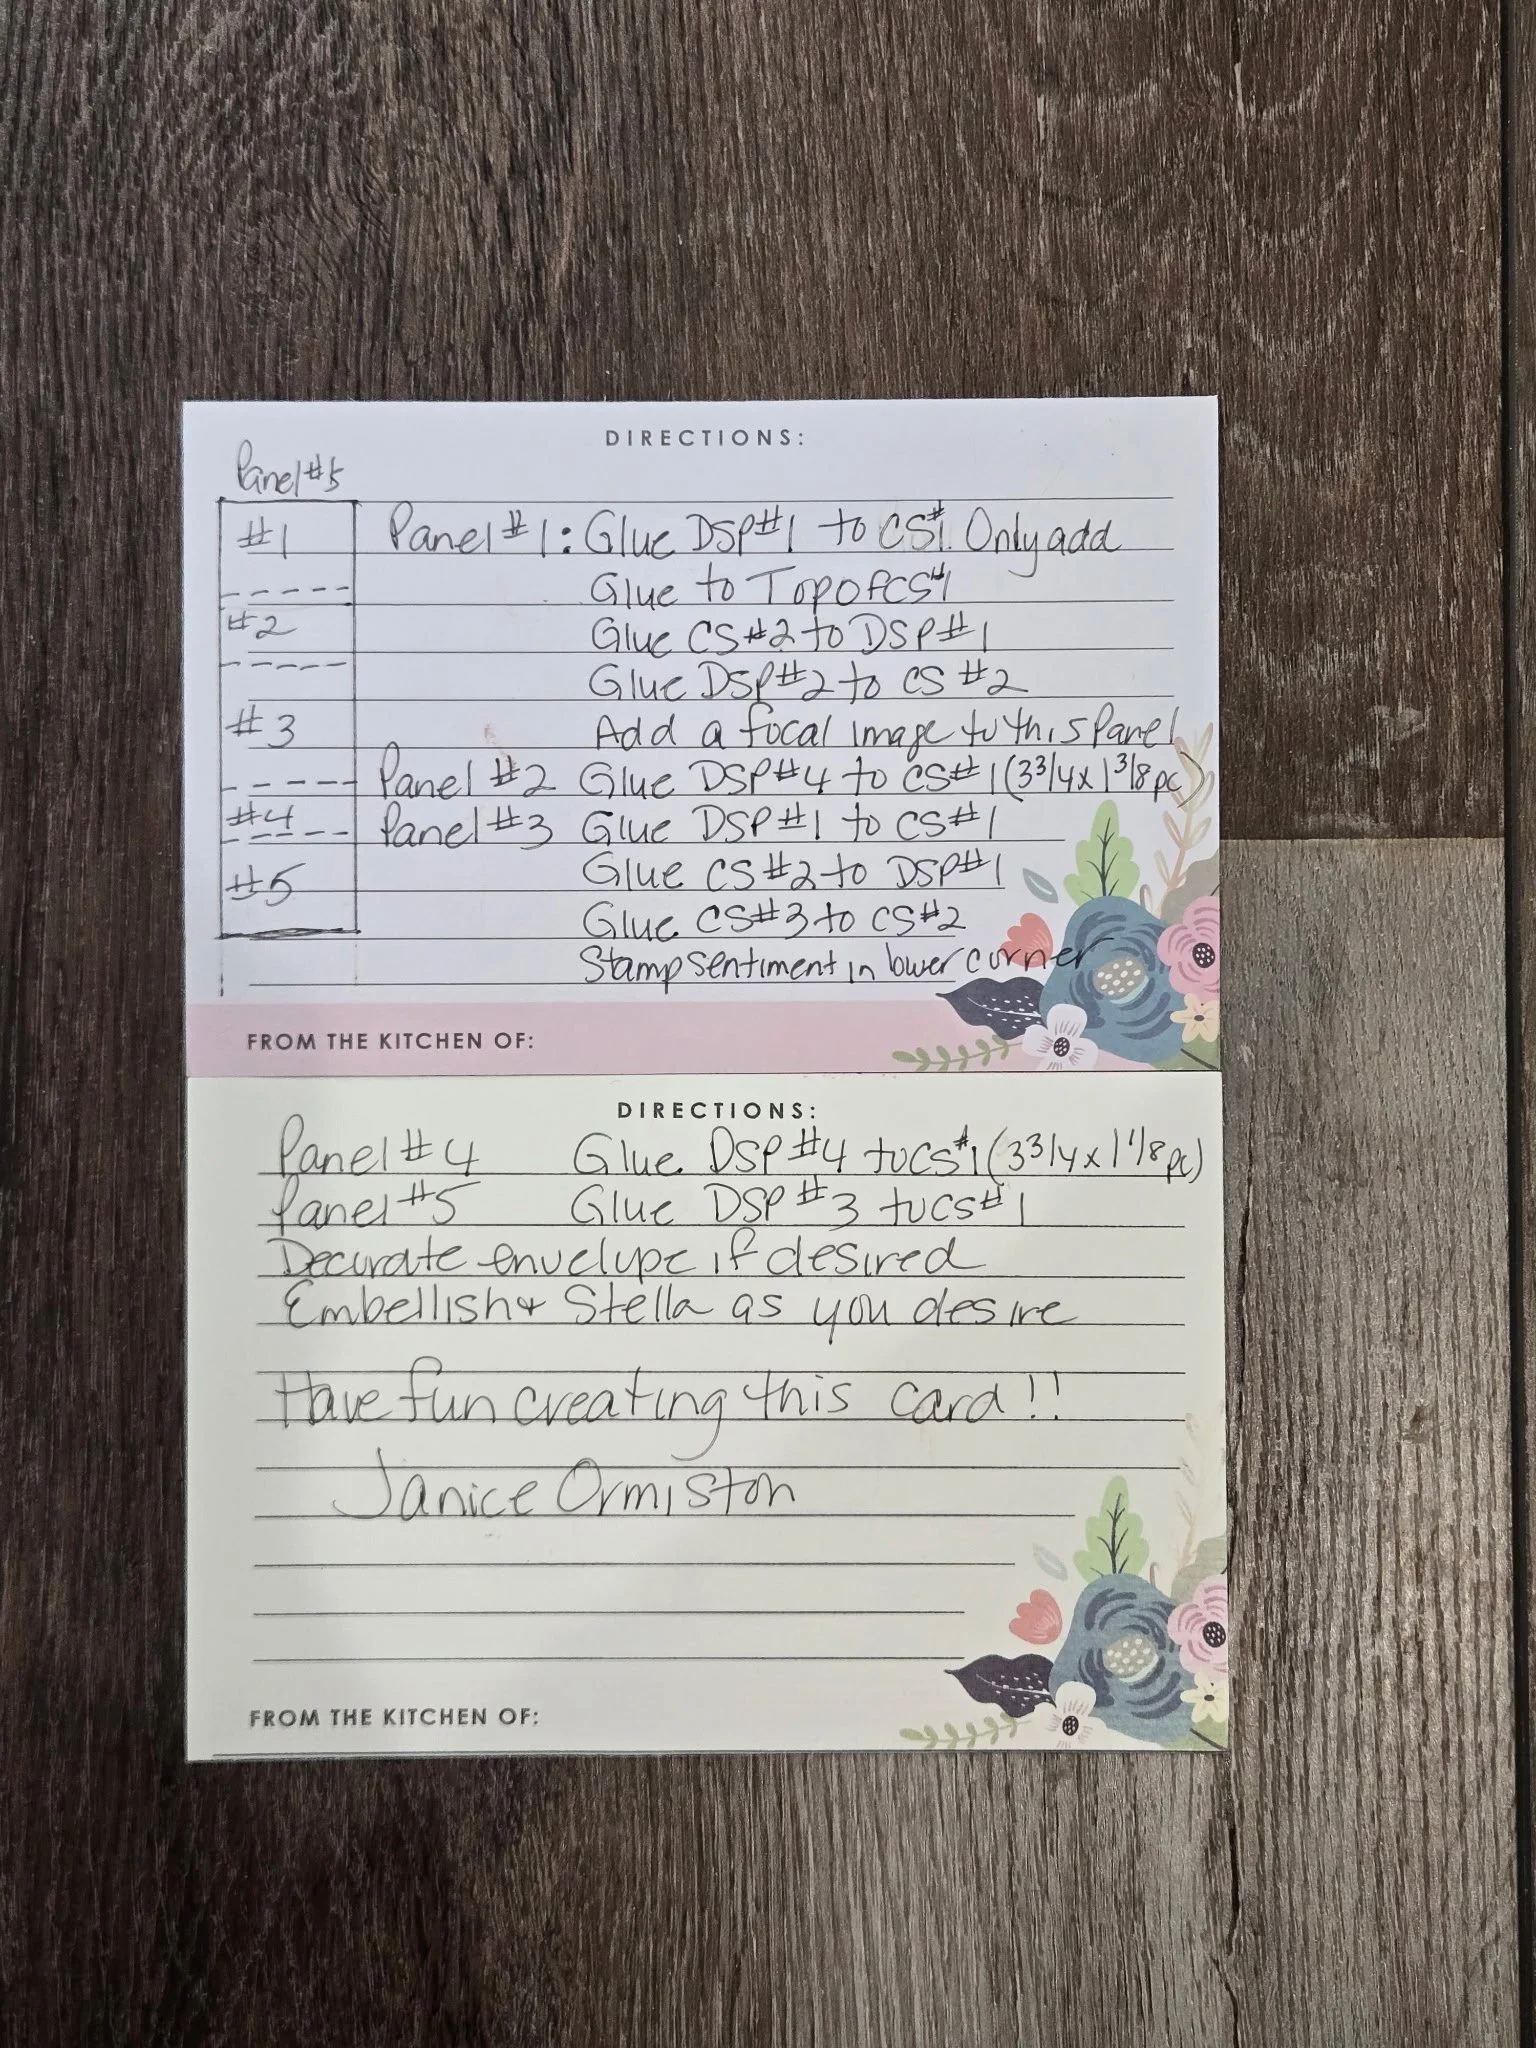 DIRECTIONS:
Panel #5
#1
#2
#3
#4
#5
Panel #1: Glue DSP#1 to CS#1. Only add
Glue to Top of CS#1
Glue CS#2 to DSP#1
Glue DSP#2 to CS #2
Add a focal image to this Panel
Panel #2 Glue DSP#4 to CS#1 (3 3/4 x 1 3/8 pc)
Panel #3 Glue DSP#1 to CS#1
Glue CS#2 to DSP#1
Glue CS#3 to CS#2
Stamp sentiment in lower corner
FROM THE KITCHEN OF:
DIRECTIONS:
Panel #4 Glue DSP #4 to CS#1 (3 3/4 x 1 1/8 pc)
Panel #5 Glue DSP #3 to CS#1
Decorate envelope if desired
Embellish & Stella as you desire
Have fun creating this card!!
Janice Ormiston
FROM THE KITCHEN OF: